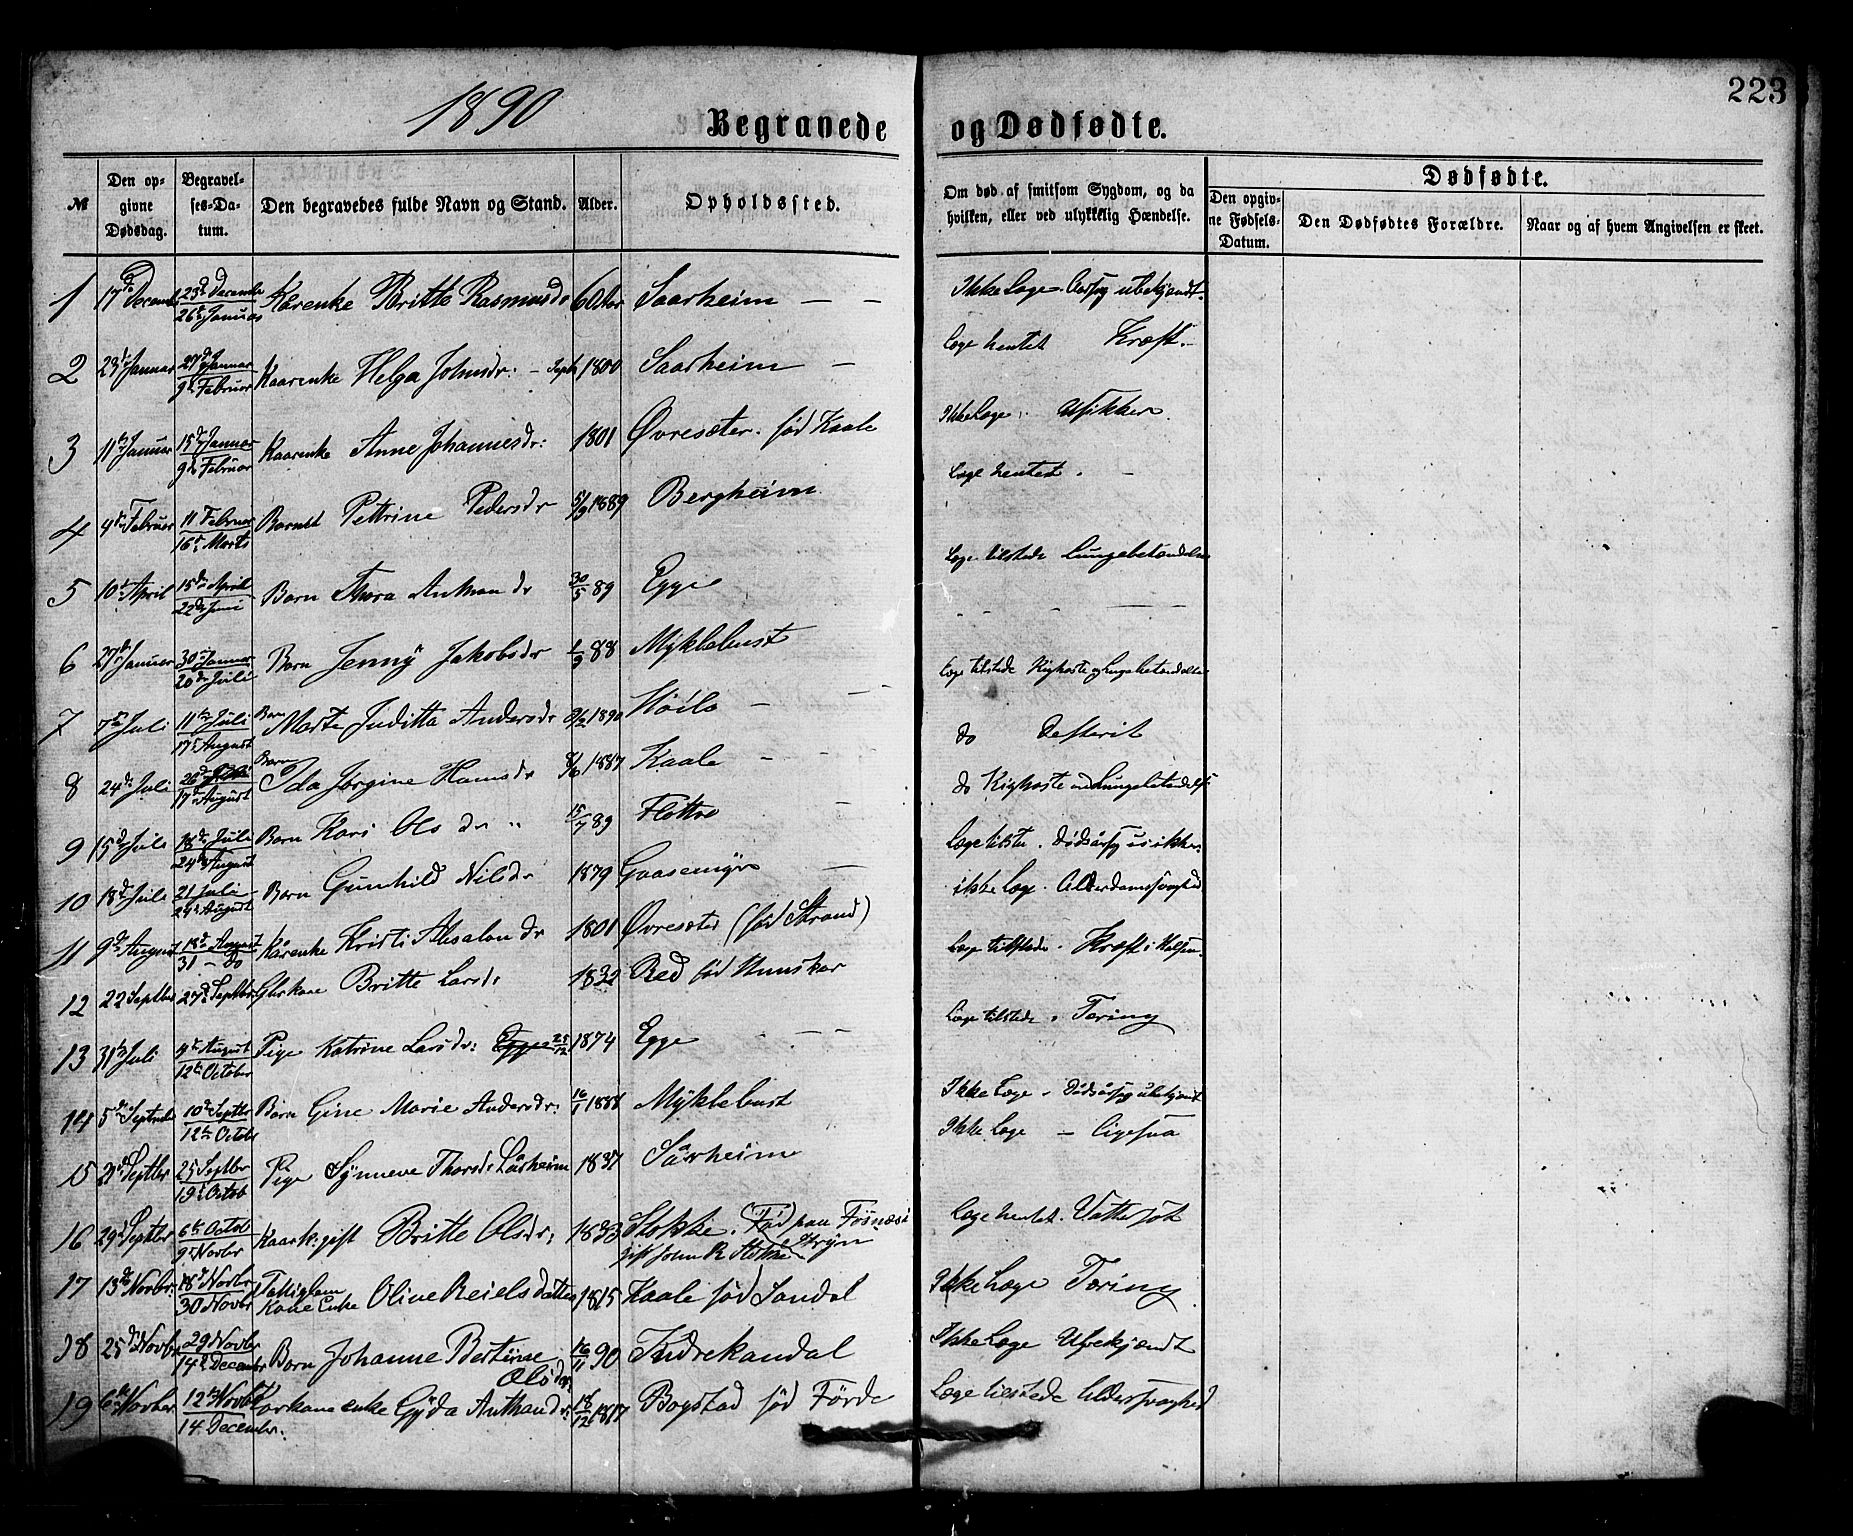 223
1890
Begravede og Dødfødte.
№ Den opgivne Dødsdag. Begravelses-Datum. Den begravedes fulde Navn og Stand. Alder. Opholdssted. Om død af smitsom Sygdom, og da hvilken, eller ved ulykkelig Hændelse. Dødfødte.
Den opgivne Fødsels-Datum. Den Dødfødtes Forældre. Naar og af hvem Angivelsen er skeet.
1 17 Decemb 23 Decembr 26 Januar Kårenke Britte Rasmusdr Saarheim — — Ikke Læge. Aarsag ubekjendt.
2 23 Januar 27 Januar 9 Februar Kaarenke Helga Johnsdr: – Septb 1800 Saarheim — Læge hentet Kræft.
3 11 Januar 15 Januar 9 Februar Kaarenke Anne Johannesdr: 1801 Øvresæter. fød Kaale Ikke Læge. Usikker
4 4 Februar 11 Februar 16 Marts Barnet Pettrine Pedersdr 5/9 1889 Bergheim Læge hentet.
5 10 April 15 April 22 Juni Barn Thora Anthondr 30/5 89 Egge Læge tilstede Lungebetændelse
6 27 Januar 30 Januar 20 Juli Barn Jenny Jakobsdr 1/9 88 Myklebust — — —
7 7 Juli 11 Juli 17 August Barn Marte Juditta Andersdr 1890 Støilo — Læge tilstede Kighoste og Lungebetændelse
8 24 Juli 17 August Barn Ida Jørgine Hansdr 1887 Kaale — do Defterit
9 15 Juli 18 Juli 24 August Barn Kari Olsdr 15/7 89 Flottre do Kighoste med Lungebetændelse
10 18 Juli 21 Juli 24 August Barn Gunhild Nilsdr 1879 Gaasemyr — Læge tilste. Dødsårsag usikker.
11 9 August 13 August 31 – do Kårenke Kristi Absalondr 1801 Øvresæter (fød Strand) ikke Læge. Alderdomssvaghed
12 22 Septbr 27 Septbr Kone Britte Larsdr 1832 Red fød Læge tilstede. Kræft i Halsen
13 31 Juli 4 August 12 October Pige Katrine Larsdr: 25/12 1874 Egge — — Læge tilstede. Tæring
14 5 Septembr 10 Septbr 12 Octobr Barn Gine Marie Andersdr: 16/1 1888 Myklebust Ikke Læge. Dødsårsag ubekjendt
15 21 Septbr 25 Septbr 19 Octob Pige Synneve Thorsdr Sårheim 1837 Sårheim Ikke Læge — ligesaa
16 29 Septbr 6 Octob 9 Novbr Kaark. gift Britte Olsdr: 1833 Stokke. (Fød paa Fosnæs i Stryn gift John R Stokke Læge hentet. Vattersot
17 13 Novbr: 18 Novbr 30 Novbr Fattiglem Kone Enke Olive Reielsdatter 1815 Kaale fød Sandal Ikke Læge Tæring
18 25 Novbr 29 Novbr 14 Decembr Barn Johanne Bertine Olsdr: 16/11 90 Indrekandal Ikke Læge Ubekjendt
19 6 Novber 12 Novbr 14 December. enke Gyda Anthondr: 18/12 1817 Bogstad fød Førde Læge tilstede Alderssvaghed